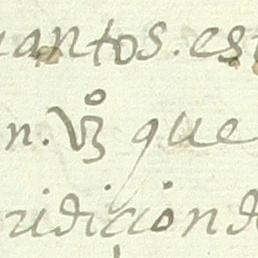 uantos. est
n. Vz̊ que
ridicion d